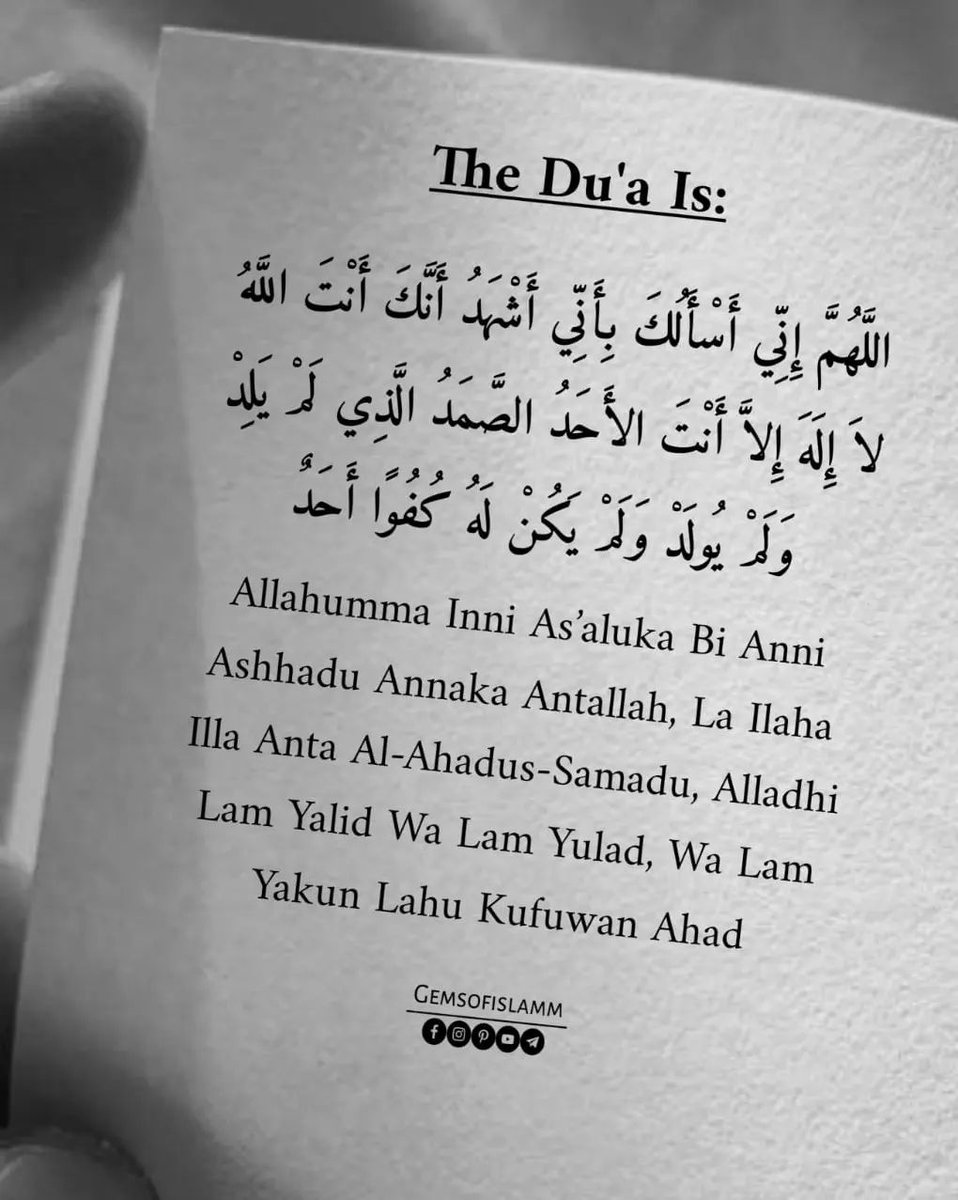 The Du'a Is:
اللَّهُمَّ إِنِّي أَسْأَلُكَ بِأَنِّي أَشْهَدُ أَنَّكَ أَنْتَ اللَّهُ
لاَ إِلَهَ إِلاَّ أَنْتَ الأَحَدُ الصَّمَدُ الَّذِي لَمْ يَلِدْ
وَلَمْ يُولَدْ وَلَمْ يَكُنْ لَهُ كُفُوًا أَحَدٌ
Allahumma Inni As’aluka Bi Anni
Ashhadu Annaka Antallah, La Ilaha
Illa Anta Al-Ahadus-Samadu, Alladhi
Lam Yalid Wa Lam Yulad, Wa Lam
Yakun Lahu Kufuwan Ahad
GEMSOFISLAMM